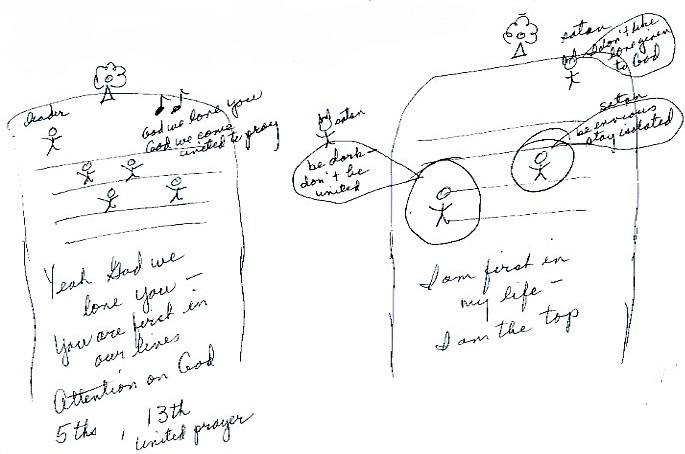 leader
God we love you
God we come
united to pray
Yeah God we
love you -
You are first in
our lives
Attention on God
5ths , 13th
united prayer
satan
be dark -
don't be
united
satan
I don't like
love given
to God
satan
be envious
stay isolated
I am first in
my life -
I am the top